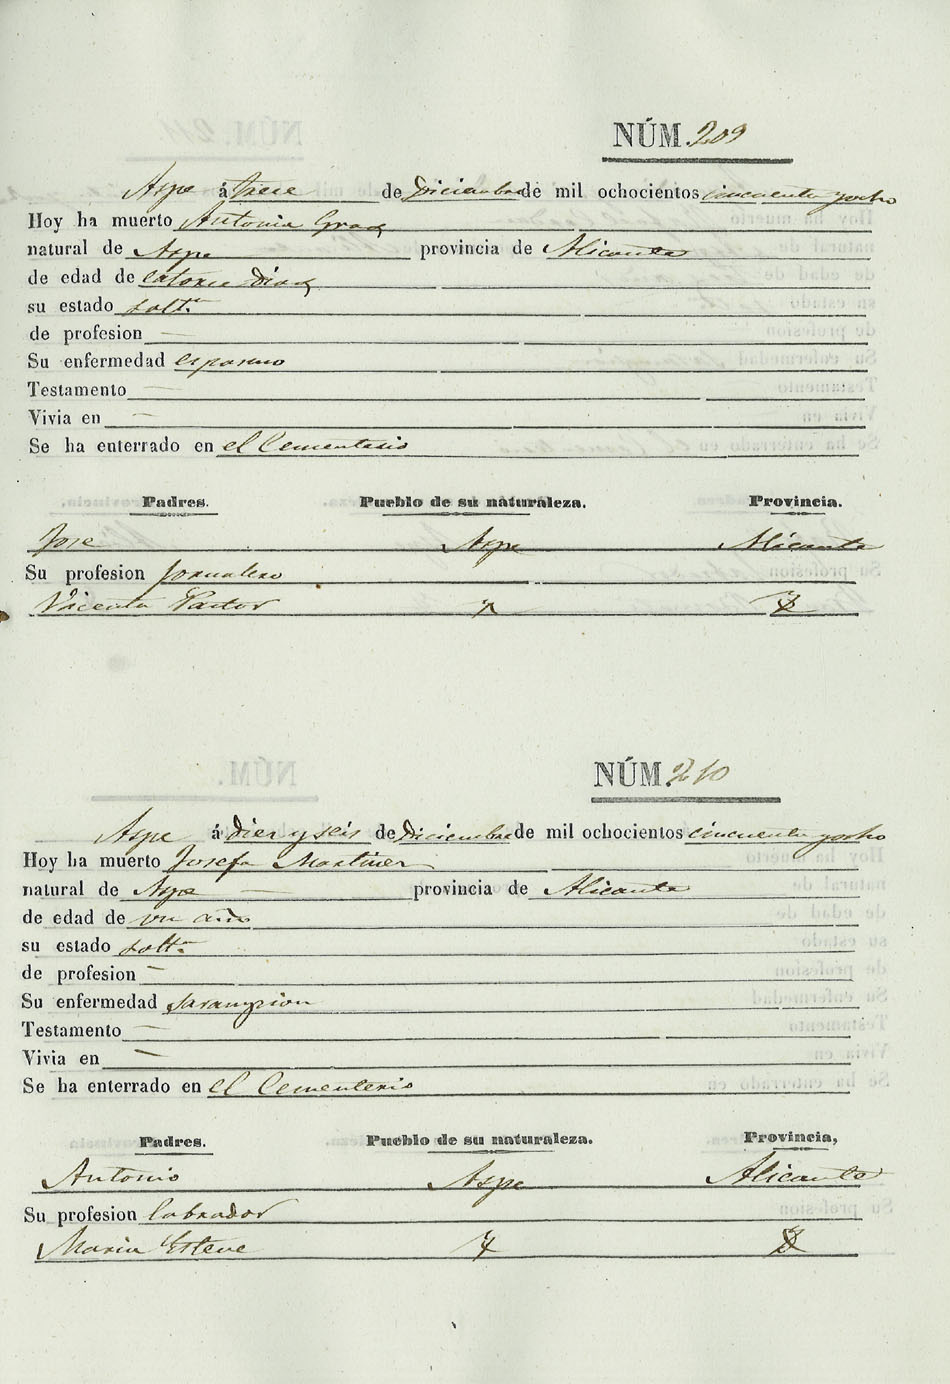 NÚM. 209
Aspe á trece de Diciembre de mil ochocientos cincuenta y ocho
Hoy ha muerto Antonia Gras
natural de Aspe provincia de Alicante
de edad de catorce Dias
su estado solt.ª
de profesion —
Su enfermedad espasmo
Testamento —
Vivia en —
Se ha enterrado en el Cementerio
Padres. Pueblo de su naturaleza. Provincia.
Jose Aspe Alicante
Su profesion Jornalero
Vicenta Pastor
NÚM. 210
Aspe á diez y seis de Diciembre de mil ochocientos cincuenta y ocho
Hoy ha muerto Josefa Martinez
natural de Aspe — provincia de Alicante
de edad de un año
su estado solt.ª
de profesion —
Su enfermedad Sarampion
Testamento —
Vivia en —
Se ha enterrado en el Cementerio
Padres. Pueblo de su naturaleza. Provincia,
Antonio Aspe Alicante
Su profesion Labrador
Maria Esteve